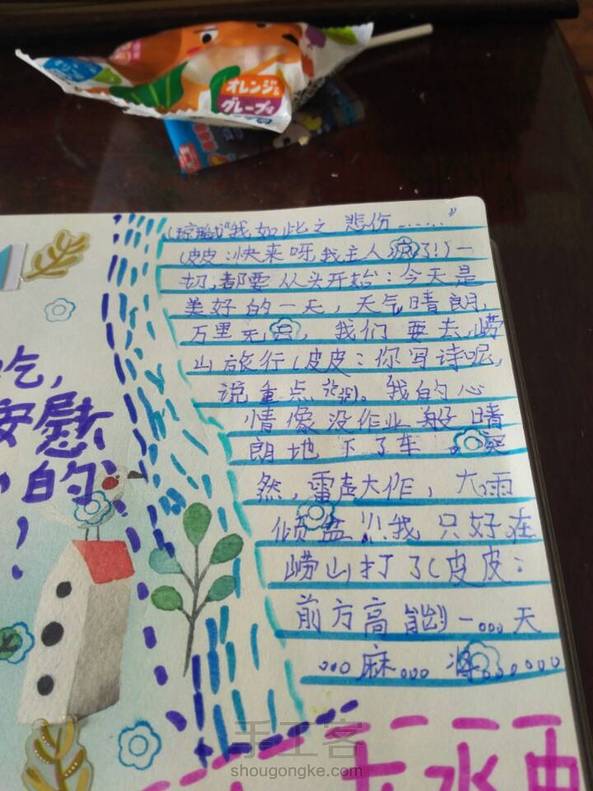 オレンジ&
グレープ味
我如此之 悲伤......"
(皮皮:快来呀,我主人疯了!)一
切,都要从头开始:今天是
美好的一天,天气晴朗,
万里无云,我们要去崂
山旅行(皮皮:你写诗呢,
说重点
我的心
情像没作业般晴
朗地下了车。突
然,雷声大作,大雨
倾盆!!我只好在
崂山打了(皮皮:
前方高能)一...天
...麻...将......
吃,
安慰
的
!
手工客
shougongke.com